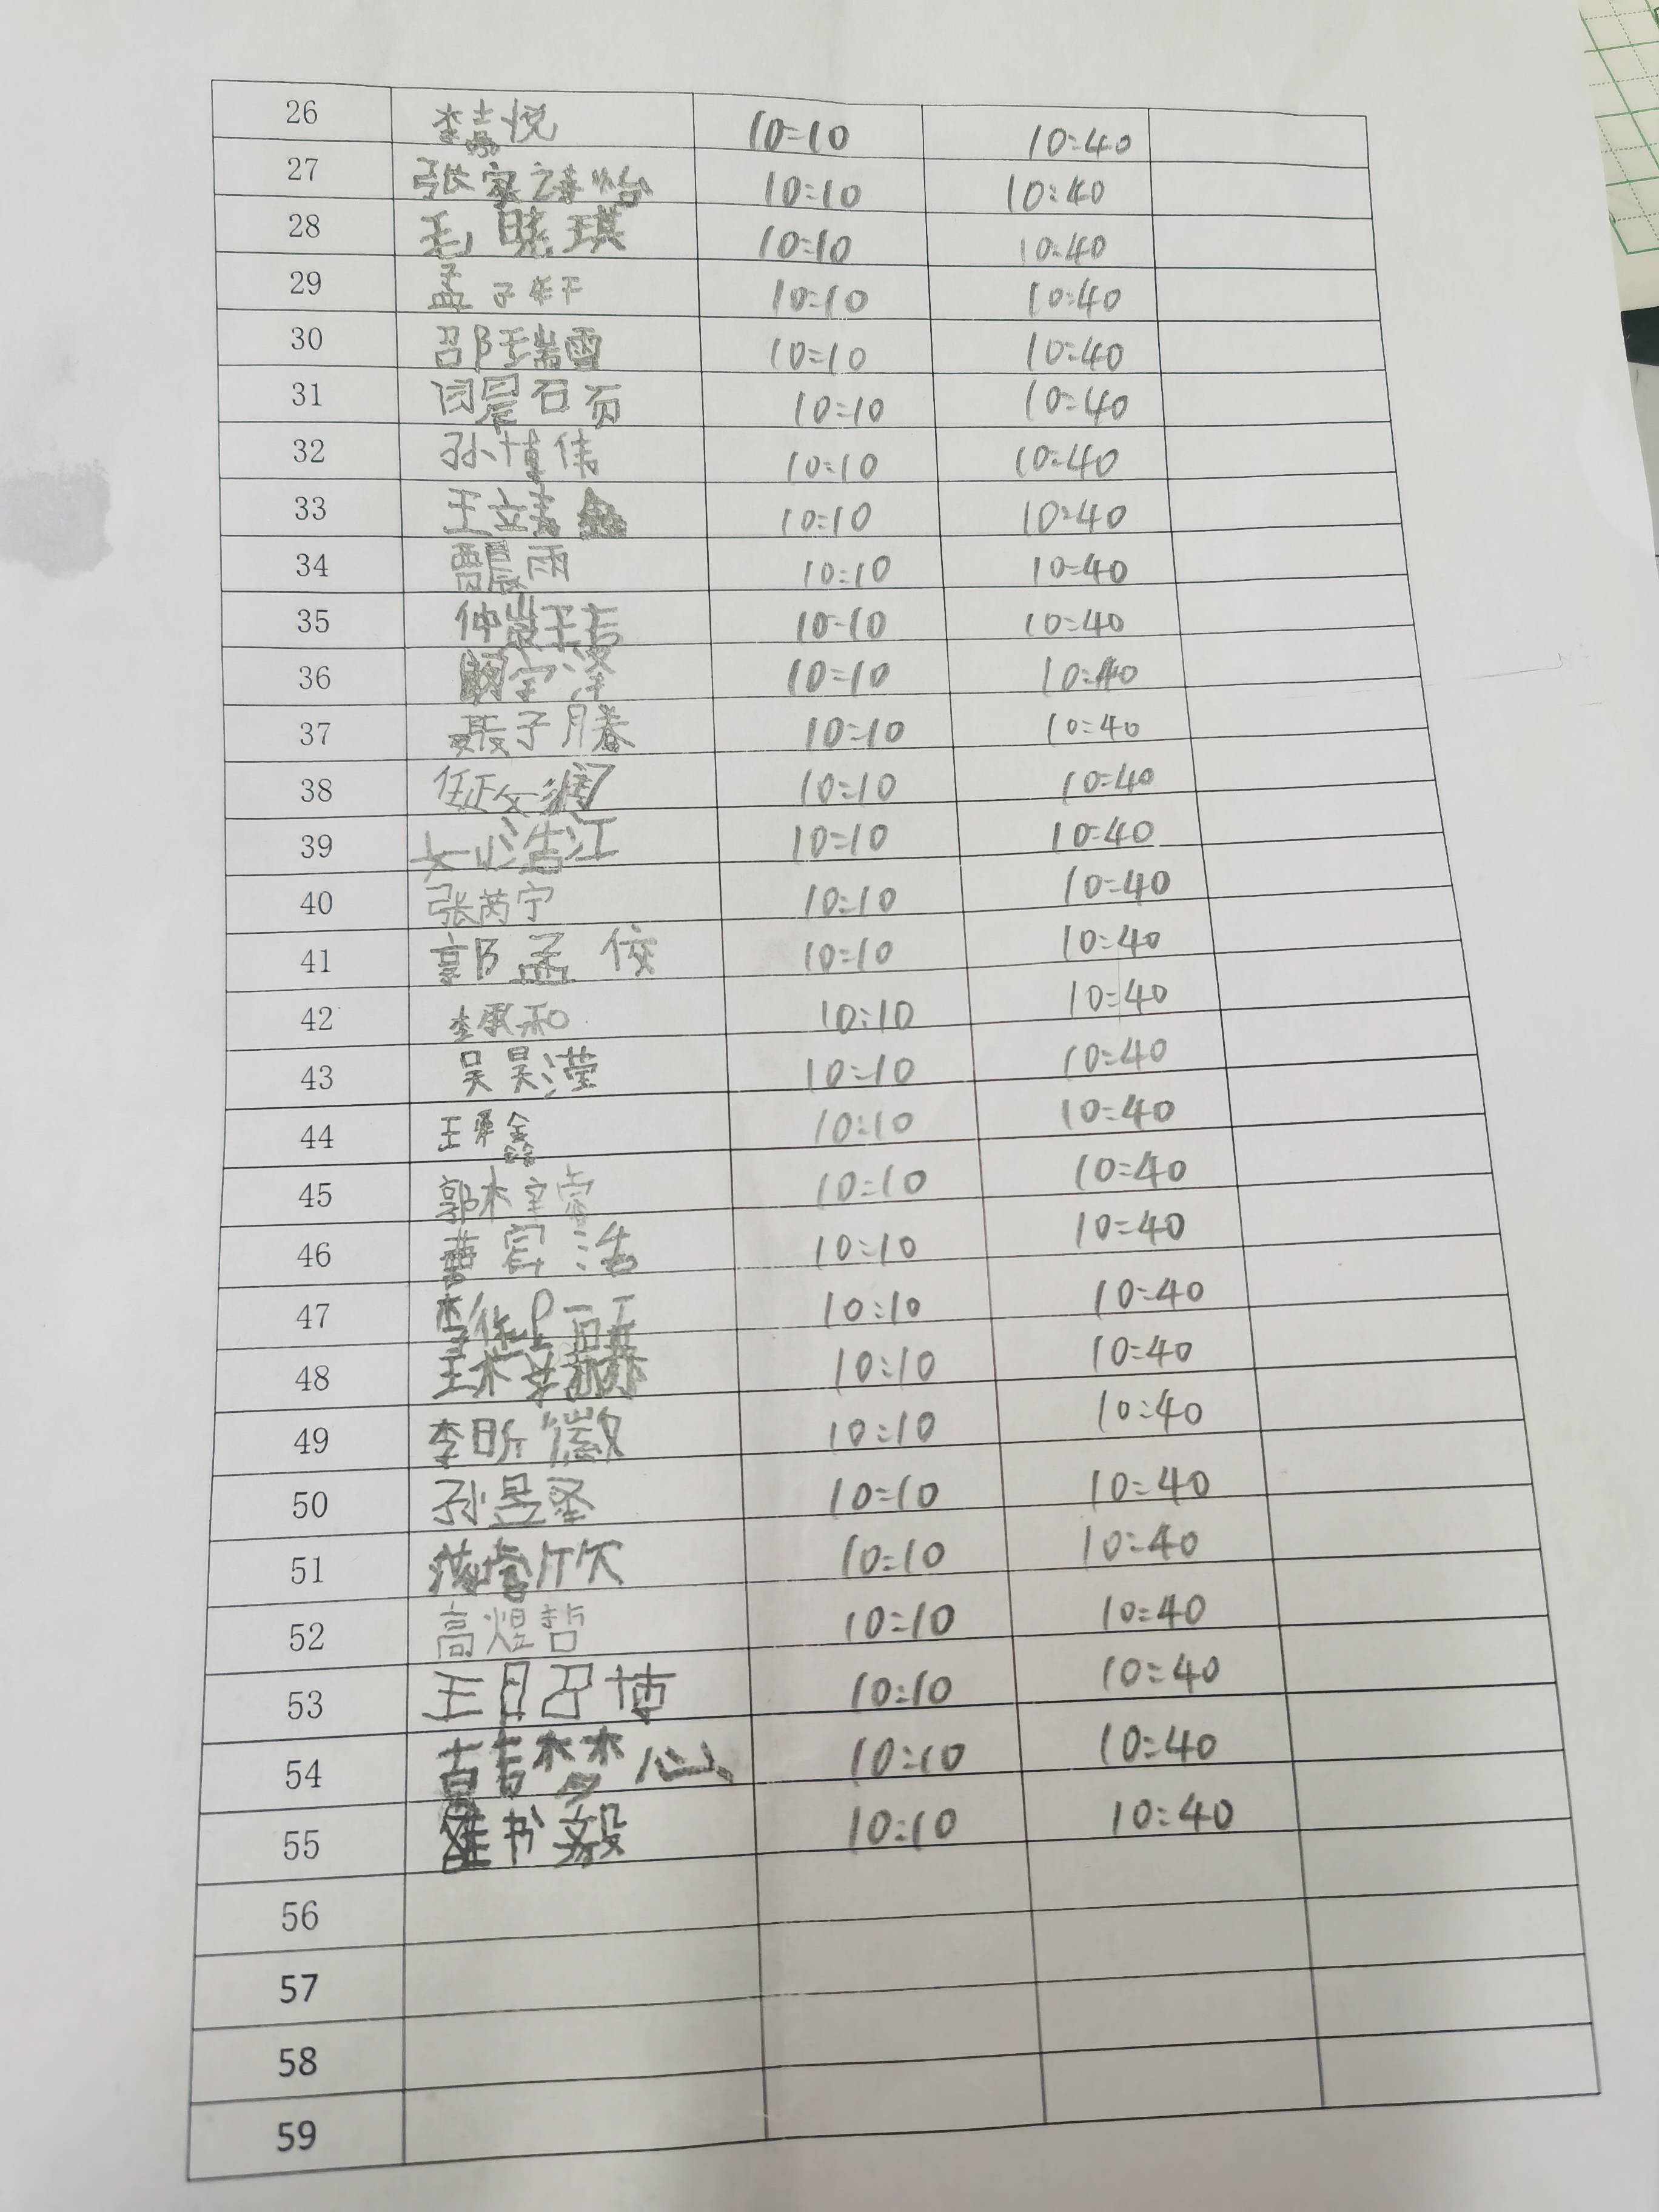 26 李 悦 10:10 10:40
27 张家 怡 10:10 10:40
28 毛晓琪 10:10 10:40
29 孟子轩 10:10 10:40
30 邵瑞雪 10:10 10:40
31 10:10 10:40
32 孙博伟 10:10 10:40
33 王 10:10 10:40
34 曹晨雨 10:10 10:40
35 仲 10:10 10:40
36 宇泽 10:10 10:40
37 聂子 10:10 10:40
38 任 10:10 10:40
39 10:10 10:40
40 张芮宁 10:10 10:40
41 郭孟 10:10 10:40
42 李承和 10:10 10:40
43 吴昊滢 10:10 10:40
44 王 鑫 10:10 10:40
45 郭梓 10:10 10:40
46 曹 浩 10:10 10:40
47 10:10 10:40
48 王梓赫 10:10 10:40
49 李昕徽 10:10 10:40
50 孙昱圣 10:10 10:40
51 10:10 10:40
52 高煜哲 10:10 10:40
53 王昭博 10:10 10:40
54 10:10 10:40
55 书毅 10:10 10:40
56
57
58
59